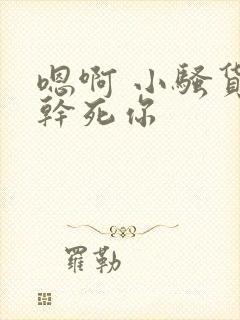 嗯啊 小騷貨
幹死你
羅勒